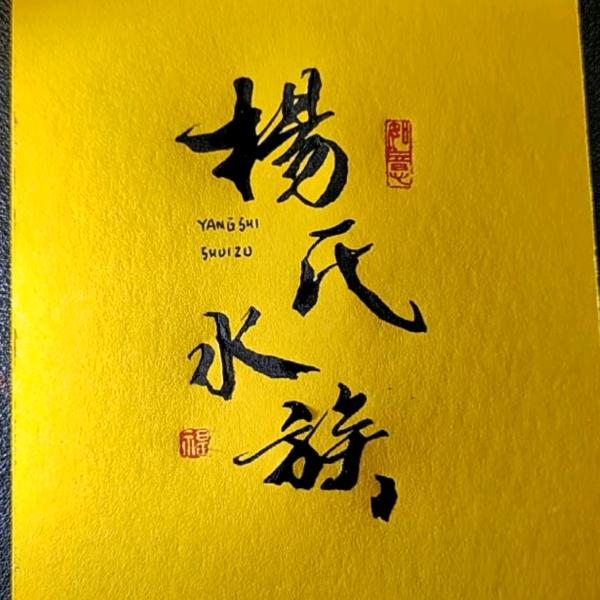 楊
氏
水
族
YANGSHI
SHUIZU
如意
福